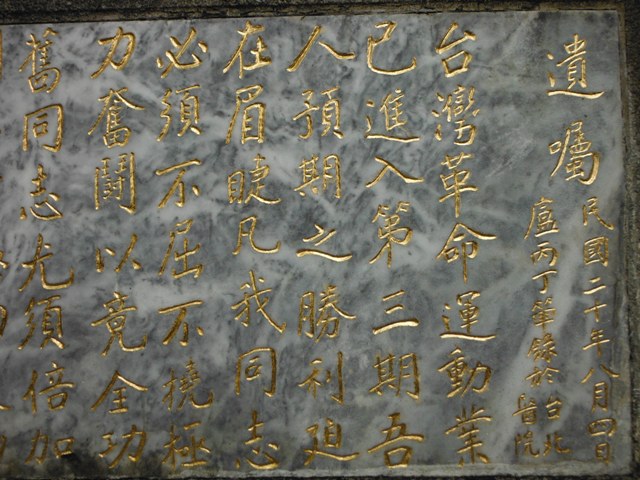 遺囑
民國二十年八月四日
盧丙丁筆錄於台北醫院
台灣革命運動業
已進入第三期吾
人預期之勝利迫
在眉睫凡我同志
必須不屈不撓極
力奮鬪以竟全功
舊同志尤須倍加